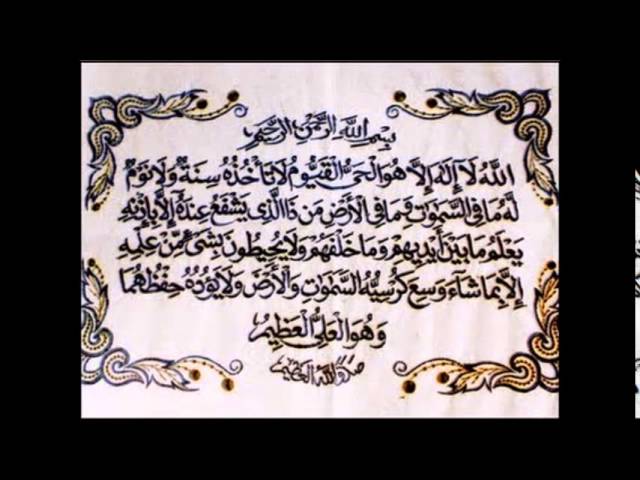 بِسْمِ اللَّهِ الرَّحْمَٰنِ الرَّحِيمِ
اللَّهُ لَا إِلَٰهَ إِلَّا هُوَ الْحَيُّ الْقَيُّومُ لَا تَأْخُذُهُ سِنَةٌ وَلَا نَوْمٌ
لَهُ مَا فِي السَّمَٰوَاتِ وَمَا فِي الْأَرْضِ مَنْ ذَا الَّذِي يَشْفَعُ عِنْدَهُ إِلَّا بِإِذْنِهِ
يَعْلَمُ مَا بَيْنَ أَيْدِيهِمْ وَمَا خَلْفَهُمْ وَلَا يُحِيطُونَ بِشَيْءٍ مِنْ عِلْمِهِ
إِلَّا بِمَا شَاءَ وَسِعَ كُرْسِيُّهُ السَّمَٰوَاتِ وَالْأَرْضَ وَلَا يَئُودُهُ حِفْظُهُمَا
وَهُوَ الْعَلِيُّ الْعَظِيمُ
صدق الله العظيم